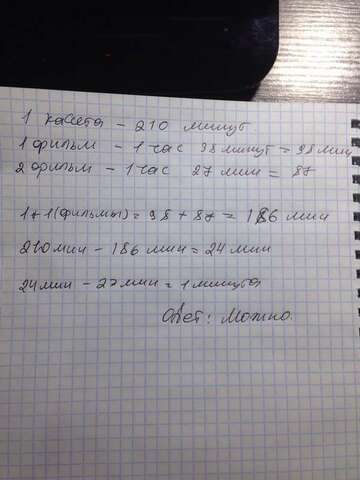 1 кассета - 210 минут
1 фильм - 1 час 38 минут = 98 мин
2 фильм - 1 час 27 мин = 87
1+1(фильмы) = 98 + 87 = 186 мин
210 мин - 186 мин = 24 мин
24 мин - 23 мин = 1 минута
Ответ: Можно.